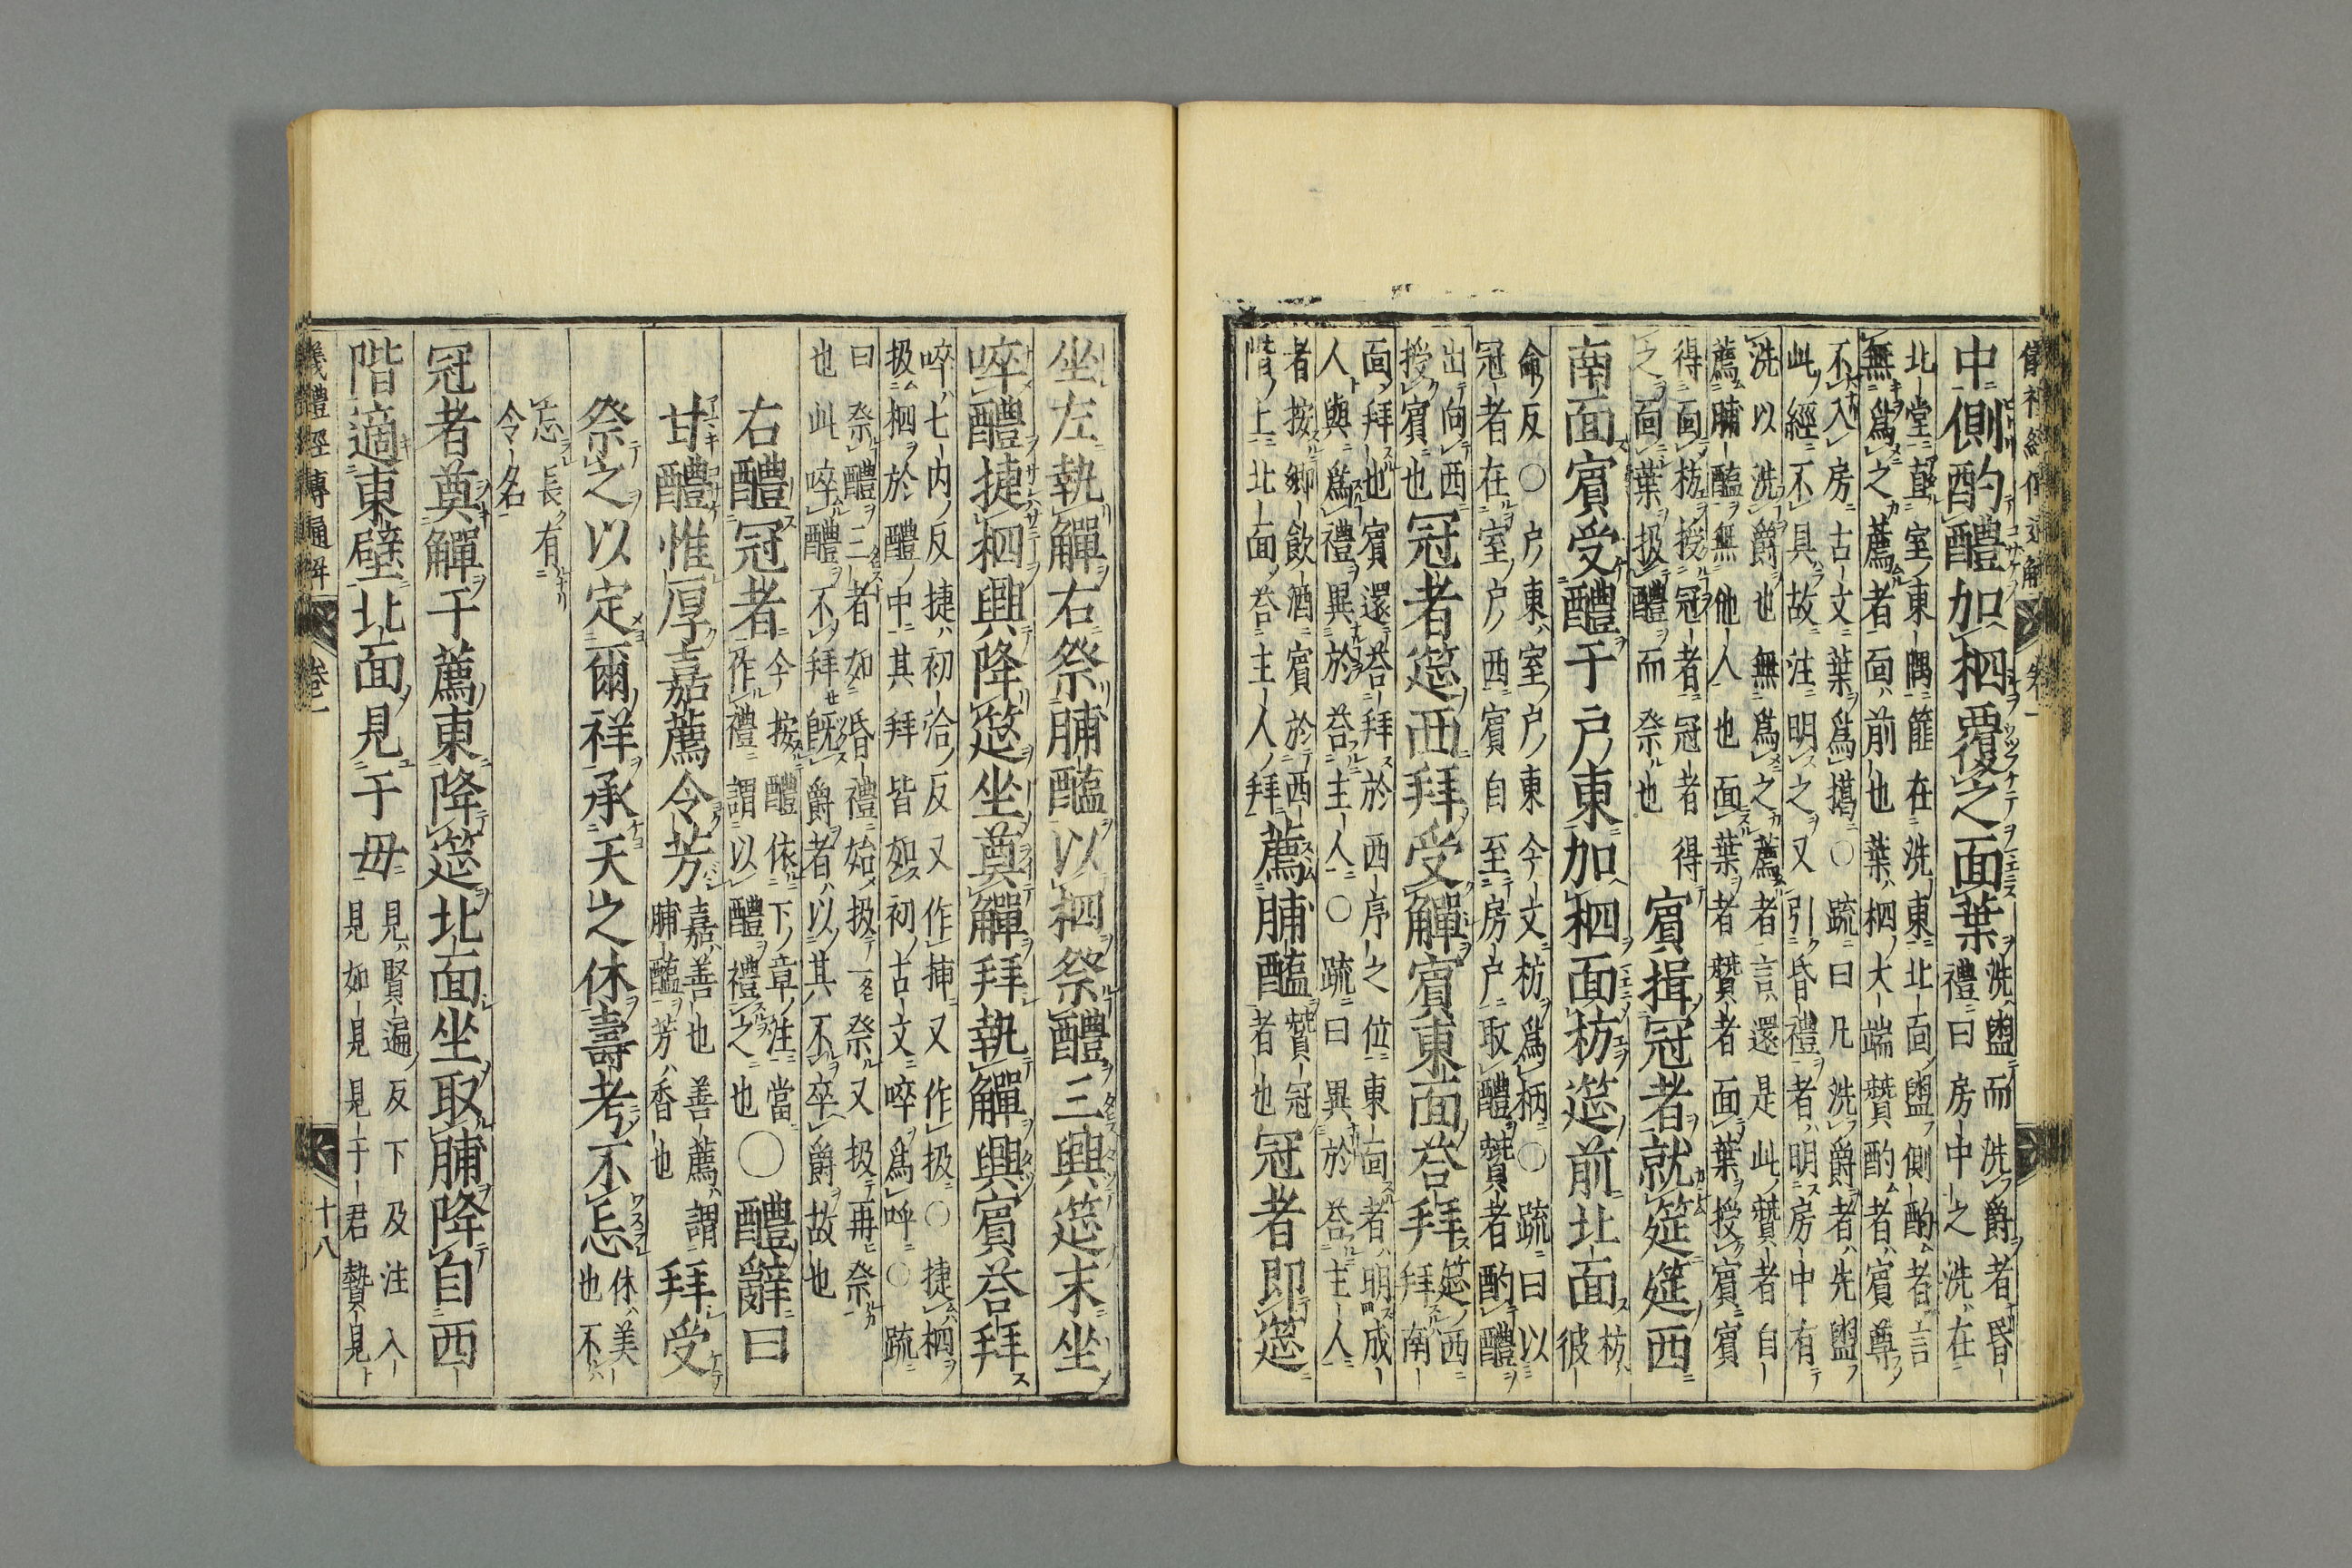 中側酌醴加柶覆之面葉洗盥而洗爵者昏
禮曰房中之洗在
北堂直室東隅篚在洗東北面盥側酌者言
無爲之薦者面前也葉柶大端贊酌者賓尊
不入房古文葉爲擖○疏曰凡洗爵者先盥
此經不具故注明之又引昏禮者明房中有
洗以洗爵也無爲之薦者言還是此贊者自
薦脯醢無他人也面葉者贊者面葉授賓賓
得面枋授冠者冠者得
之面葉扱醴而祭也
賓揖冠者就筵筵西
南面賓受醴于戶東加柶面枋筵前北面枋
彼
命反○戶東室戶東今文枋爲柄○疏曰以
冠者在室戶西賓自至房戶取醴贊者酌醴
出向西
授賓也
冠者筵西拜受觶賓東面荅拜筵西
拜南
面拜也賓還荅拜於西序之位東面者明成
人與爲禮異於荅主人○疏曰異於荅主人
者按鄉飲酒賓於西
階上北面荅主人拜
薦脯醢贊冠
者也
冠者即筵
坐左執觶右祭脯醢以柶祭醴三興筵末坐
啐醴捷柶興降筵坐奠觶拜執觶興賓荅拜
啐七內反捷初洽反又作揷又作扱○捷柶
扱柶於醴中其拜皆如初古文啐爲呼○疏
曰祭醴三者如昏禮始扱一祭又扱再祭
也此啐醴不拜既爵者以其不卒爵故也
右醴冠者今按醴依下章注當
作禮謂以醴禮之也
○醴辭曰
甘醴惟厚嘉薦令芳嘉善也善薦謂
脯醢芳香也
拜受
祭之以定爾祥承天之休壽考不忘休美
也不
忘長有
令名
冠者奠觶于薦東降筵北面坐取脯降自西
階適東壁北面見于母見賢遍反下及注入
見如見見于君贄見
儀禮經傳通解
卷一
十八